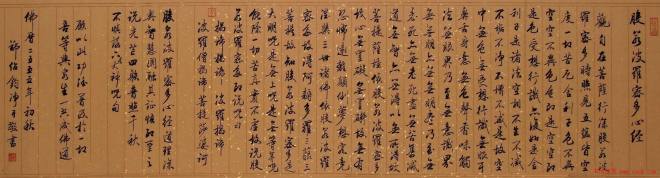 般若波羅蜜多心經
觀自在菩薩行深般若波
羅蜜多時照見五蘊皆空
度一切苦厄舍利子色不異
空空不異色色即是空空即
是色受想行識亦復如是舍
利子是諸法空相不生不滅
不垢不淨不增不減是故空
中無色無受想行識無眼耳
鼻舌身意無色聲香味觸
法無眼界乃至無意識界
無無明亦無無明盡乃至無
老死亦無老死盡無苦集滅
道無智亦無得以無所得故
菩提薩埵依般若波羅蜜多
故心無罣礙無罣礙故無有
恐怖遠離顛倒夢想究竟
涅槃三世諸佛依般若波
羅蜜多故得阿耨多羅三藐三
菩提故知般若波羅蜜多是
大神咒是大明咒是無上咒是無等等咒
能除一切苦真實不虛故說般
若波羅蜜多咒即說咒曰
揭諦揭諦波羅揭諦
波羅僧揭諦菩提薩婆訶
般若波羅蜜多心經道理深
奧智慧圓融其
千秋
不明故
神咒曰
願以此功德普及於一切
吾等與眾生一共成佛道
佛曆二五五五年初秋
釋紹鈞淨手敬書